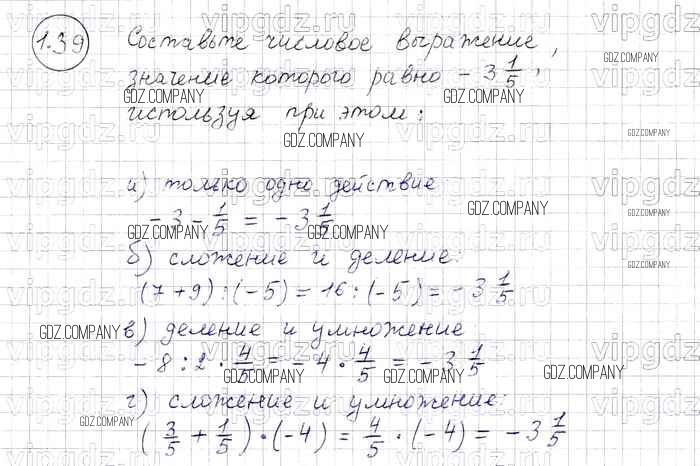 1.39 Составьте числовое выражение,
значение которого равно - 3 1/5,
используя при этом:
а) только одно действие
- 3 - 1/5 = - 3 1/5
б) сложение и деление:
(7 + 9) : (- 5) = 16 : (- 5) = - 3 1/5
в) деление и умножение
- 8 : 2 · 4/5 = - 4 · 4/5 = - 3 1/5
г) сложение и умножение:
(3/5 + 1/5) · (- 4) = 4/5 · (- 4) = - 3 1/5
vipgdz.ru
GDZ.COMPANY